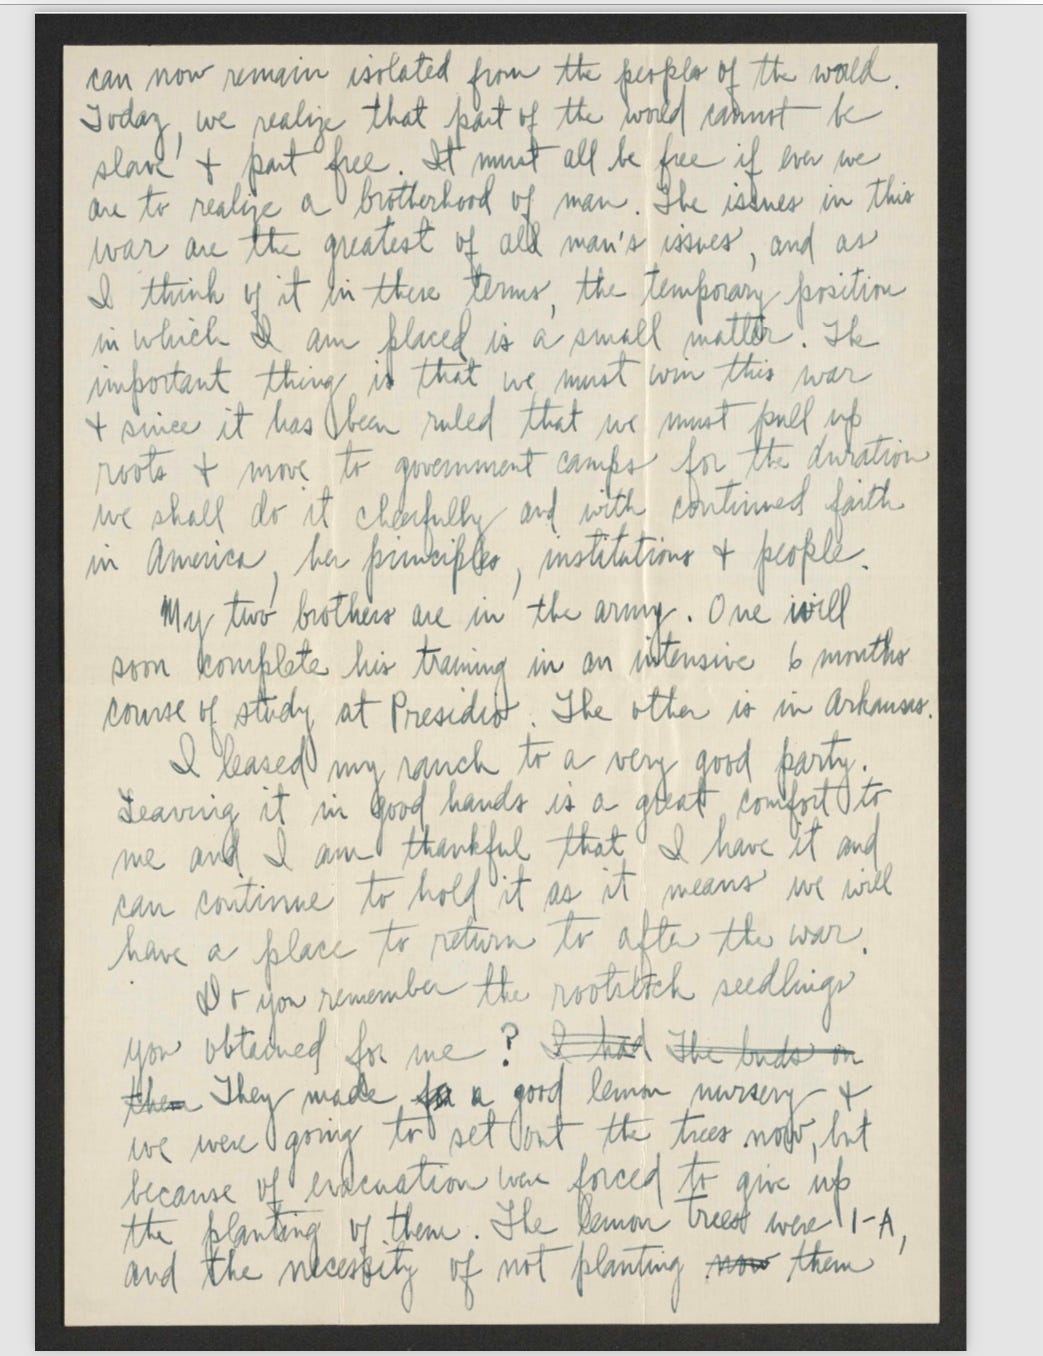 can now remain isolated from the peoples of the world.
Today, we realize that part of the world cannot be
slave + part free. It must all be free if ever we
are to realize a brotherhood of man. The issues in this
war are the greatest of all man's issues, and as
I think of it in these terms, the temporary position
in which I am placed is a small matter. The
important thing is that we must win this war
+ since it has been ruled that we must pull up
roots + move to government camps for the duration
we shall do it cheerfully and with continued faith
in America, her principles, institutions + people.
My two brothers are in the army. One will
soon complete his training in an intensive 6 months
course of study at Presidio. The other is in Arkansas.
I leased my ranch to a very good party.
Leaving it in good hands is a great comfort to
me and I am thankful that I have it and
can continue to hold it as it means we will
have a place to return to after the war.
Do you remember the rootstock seedlings
you obtained for me? I had The buds on
them They made for a good lemon nursery +
we were going to set out the trees now, but
because of evacuation were forced to give up
the planting of them. The lemon trees were 1-A,
and the necessity of not planting now them